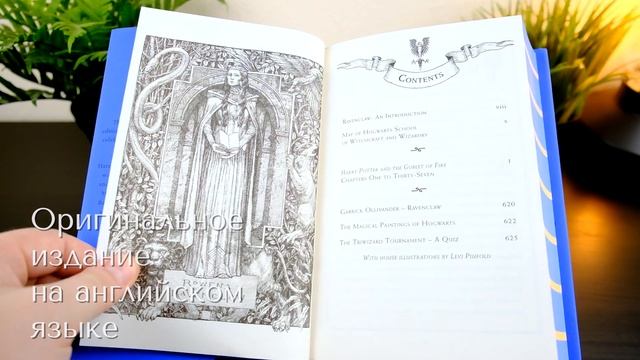 Оригинальное
издание
на английском
языке
ROWENA
CONTENTS
RAVENCLAW: AN INTRODUCTION viii
MAP OF HOGWARTS SCHOOL x
OF WITCHCRAFT AND WIZARDRY
HARRY POTTER AND THE GOBLET OF FIRE 1
CHAPTERS ONE TO THIRTY-SEVEN
GARRICK OLLIVANDER – RAVENCLAW 620
THE MAGICAL PAINTINGS OF HOGWARTS 622
THE TRIWIZARD TOURNAMENT – A QUIZ 625
WITH HOUSE ILLUSTRATIONS BY LEVI PINFOLD